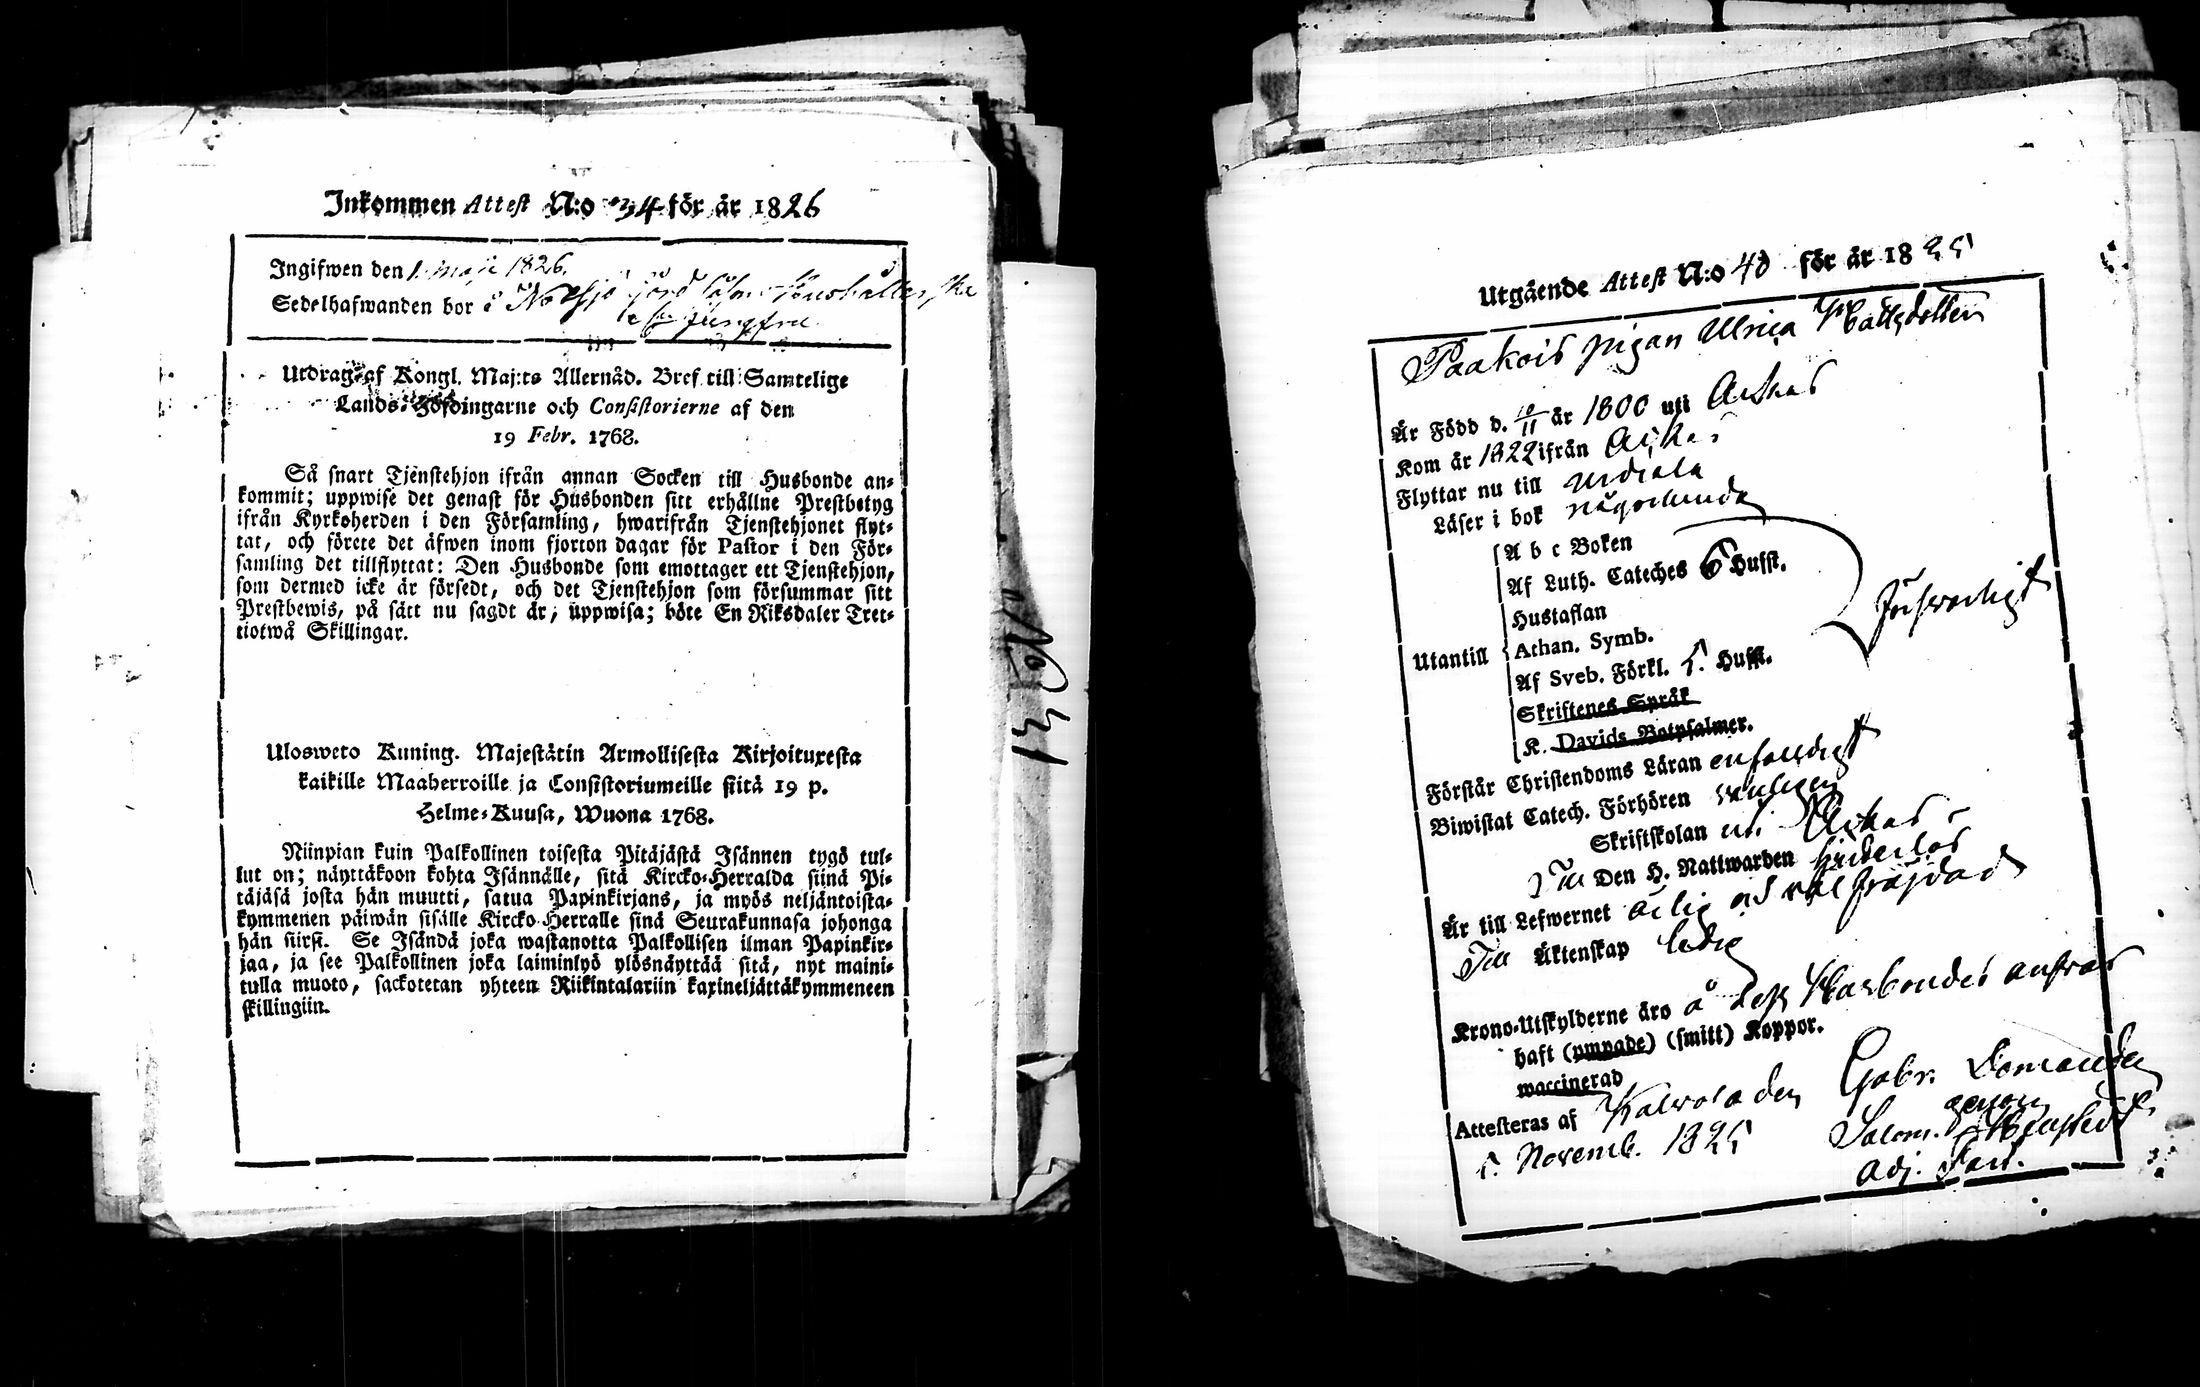 Inkommen Attest N:o 34 för år 1826
Ingifwen den 1. Maji 1826.
Sedelhafwanden bor å Notsjö såsom Hushållerska
Jungfru
Utdrag af Kongl. Maj:ts Allernåd. Bref till Samtelige
Lands-Höfdingarne och Consistorierne af den
19 Febr. 1768.
Så snart Tjenstehjon ifrån annan Socken till Husbonde an-
kommit; uppwise det genast för Husbonden sitt erhållne Prestbetyg
ifrån Kyrkoherden i den Församling, hwarifrån Tjenstehjonet flyt-
tat, och förete det äfwen inom fjorton dagar för Pastor i den För-
samling det tillflyttat: Den Husbonde som emottager ett Tjenstehjon,
som dermed icke är försedt, och det Tjenstehjon som försummar sitt
Prestbewis, på sätt nu sagdt är, uppwisa; böte En Riksdaler Tret-
tiotwå Skillingar.
Ulosweto Kuning. Majestätin Armollisesta Kirjoituxesta
kaikille Maaherroille ja Consistoriumeille siitä 19 p.
Helme-Kuusa, Wuona 1768.
Niinpian kuin Palkollinen toisesta Pitäjästä Isännen tygö tul-
lut on; näyttäkoon kohta Isännälle, sitä Kircko-Herralda siinä Pi-
täjäsä josta hän muutti, satua Papinkirjans, ja myös neljäntoista-
kymmenen päiwän sisälle Kircko-Herralle sinä Seurakunnasa johonga
hän siirsi. Se Isändä joka wastanotta Palkollisen ilman Papinkir-
jaa, ja see Palkollinen joka laiminlyö ylösnäyttää sitä, nyt maini-
tulla muoto, sackotetan yhteen Riikintalariin kaxineljättäkymmeneen
skillingiin.
No 34
Utgående Attest N:o 40 för år 1825
Paakois pigan Ulrica Mattsdotter
Är Född d. 10/11 år 1800 uti Ackas
Kom år 1822 ifrån Ackas
Flyttar nu till Urdiala
Läser i bok någorlunda
Utantill
A b c Boken
Af Luth. Cateches 6 Hufst.
Hustaflan
Athan. Symb.
Af Sveb. Förkl. 5. Hufst.
Skriftenes Språk
K. Davids Botpsalmer.
Förswarligt
Förstår Christendoms Läran enfaldigt
Biwistat Catech. Förhören wanligen
Skriftskolan uti Ackas
Till Den H. Nattwarden hinderlös
Är till Lefwernet ärlig och wälfräjdad
Till Äktenskap ledig
Krono-Utskylderne äro å dess Husbondes answar
haft (ympade) (smitt) Koppor.
waccinerad
Attesteras af Kalvola den Gabr.
5. Novemb. 1825 genom
Salom.
Adj. Past.